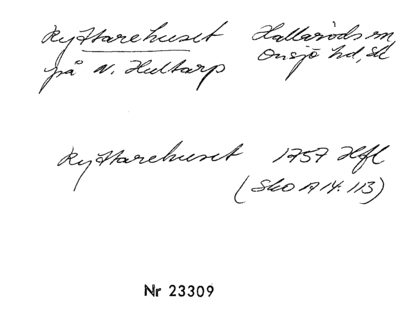 Ryttarehuset Hallaröds sn
på N. Hultarp Onsjö hd, Sk
Ryttarehuset 1757 Hfl
(Sko A 14. 113)
Nr 23309